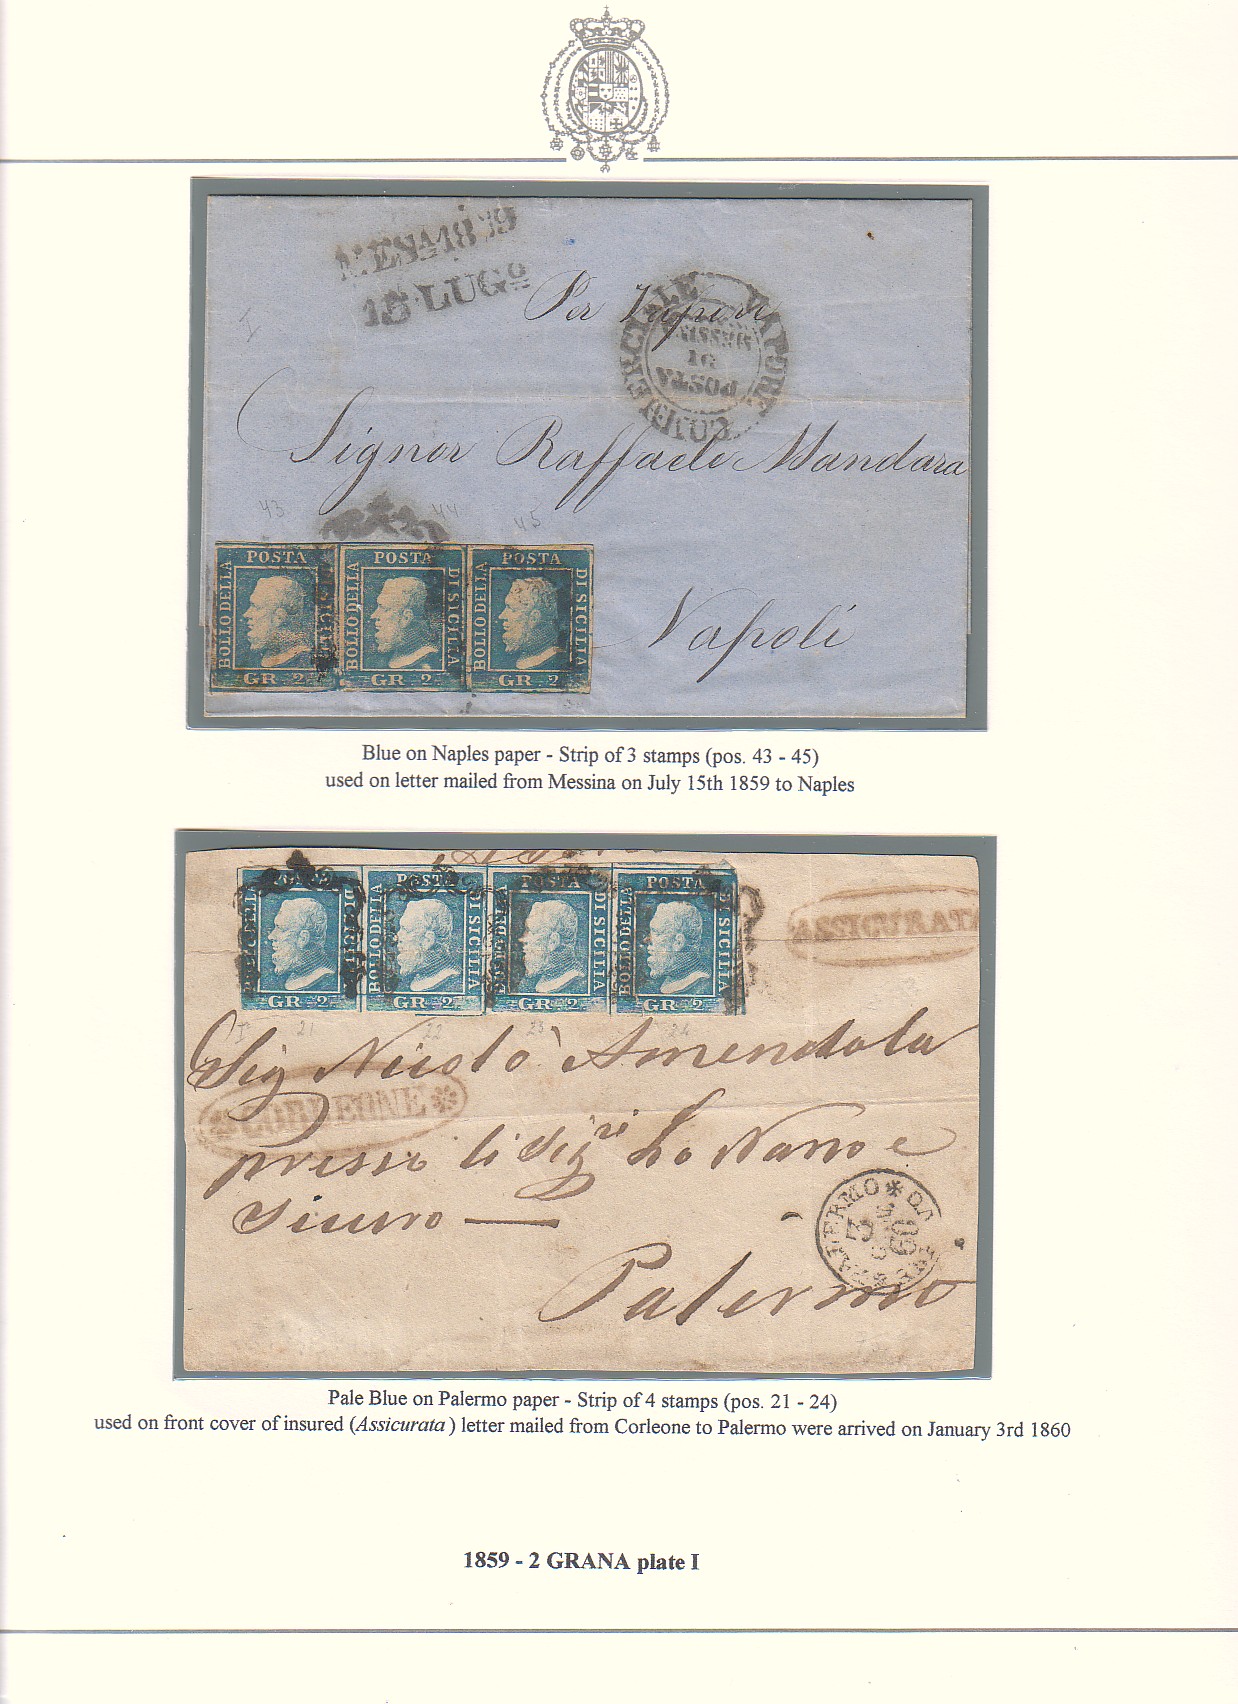 MESSA 1859
15 LUGO
Per Vapore
VAPORE COMMERCIALE
POSTA
DI
MESSINA
I
Signor Raffaele Mandara
43 44 45
POSTA POSTA POSTA
BOLLO DELLA DI SICILIA BOLLO DELLA DI SICILIA BOLLO DELLA DI SICILIA
GR. 2 GR. 2 GR. 2
Napoli
Blue on Naples paper - Strip of 3 stamps (pos. 43 - 45)
used on letter mailed from Messina on July 15th 1859 to Naples
POSTA POSTA POSTA POSTA
BOLLO DELLA DI SICILIA BOLLO DELLA DI SICILIA BOLLO DELLA DI SICILIA BOLLO DELLA DI SICILIA
GR. 2 GR. 2 GR. 2 GR. 2
ASSICURATA
I 21 22 23 24
Sig Nicolò Amendola
CORLEONE
presso li Sigri Lo Nano e
Sicuro
PALERMO
3
60
Palermo
Pale Blue on Palermo paper - Strip of 4 stamps (pos. 21 - 24)
used on front cover of insured (Assicurata) letter mailed from Corleone to Palermo were arrived on January 3rd 1860
1859 - 2 GRANA plate I